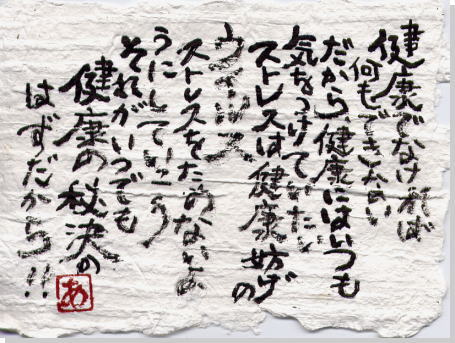 健康でなければ
何もできない
だから、健康にはいつも
気をつけていたい
ストレスは健康妨げの
ウイルス
ストレスをためないよ
うにしていこう
それがいつでも
健康の秘決の
はずだから!!
あ